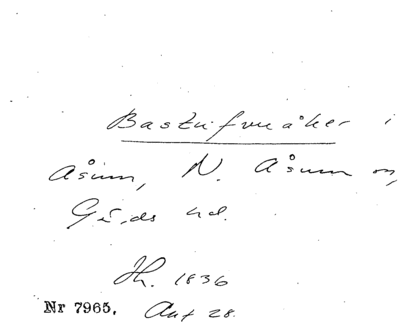 Bastufvuåker i
Åsum, N. Åsum sn,
Gärds hd.
Jh. 1836
Nr 7965. Akt 28.